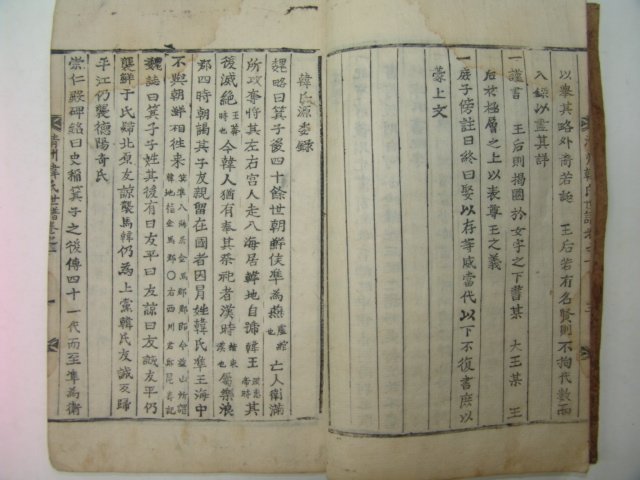 以舉其略外裔若誕 王后若有名賢則不拘代數而
入錄以盡其詳
一謹書 王后則揭圈於女字之下書某 大王某 王
后於極層之上以表尊王之義
一庶子傍註日終曰娶以存等威當代以下不復書庶以
蒙上文
韓氏源委錄
魏略曰箕子後四十餘世朝鮮侯準為燕 亡人衛滿
所攻奪將其左右宮人走入海居韓地自號韓王 其
後滅絶 今韓人猶有奉其祭祀者漢時 屬樂浪
郡四時朝謁其子友親留在國者因冒姓韓氏準王海中
不與朝鮮相往來
魏誌曰箕子子姓其後有曰友平曰友諒曰友誠友平仍
襲鮮于氏歸北原友諒襲馬韓仍為上黨韓氏友誠歸
平江仍襲德陽奇氏
崇仁殿碑銘曰史稱箕子之後傳四十一代而至準為衛
清州韓氏世譜卷之一